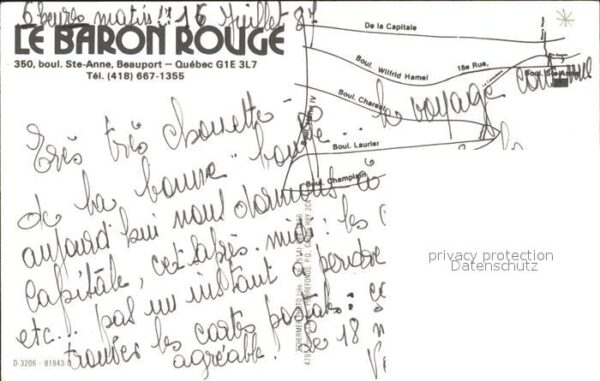 6 heures matin!! 16 Juillet 8
LE BARON ROUGE
350, boul. Ste-Anne, Beauport – Québec G1E 3L7
Tél. (418) 667-1355
De la Capitale
Boul. Wilfrid Hamel
18e Rue,
Boul. Ste-Anne
Boul. Charest
Boul. Laurier
Boul. Champlain
le voyage continue
Très très chouette -
de la bonne bouffe...
aujourd'hui nous dormons à
Capitale, cet après-midi: les
etc... pas un instant à perdre
trouver les cartes postales:
agréable. de 18
D-3206 - 81943-
privacy protection
Datenschutz